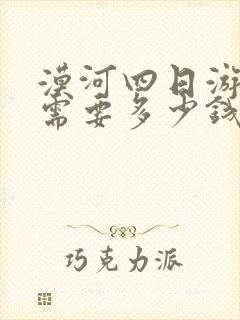 漠河四日游
需要多少钱
巧克力派